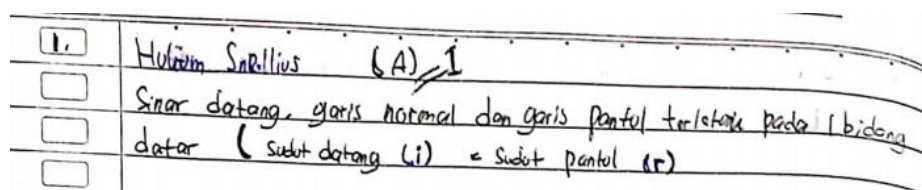 1. Hukum Snellius (A) I
Sinar datang, garis normal dan garis Pantul terletak pada 1 bidang
datar ( sudut datang (i) = sudut pantul (r)